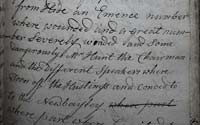 from Hide an Emence number
where wounded and a great num
ber Severely wonded and Some
dangerously Mr Hunt the Chairman
and the different Speakers where
torn off the Hustings and conved to
to the Newbayley where part
where part